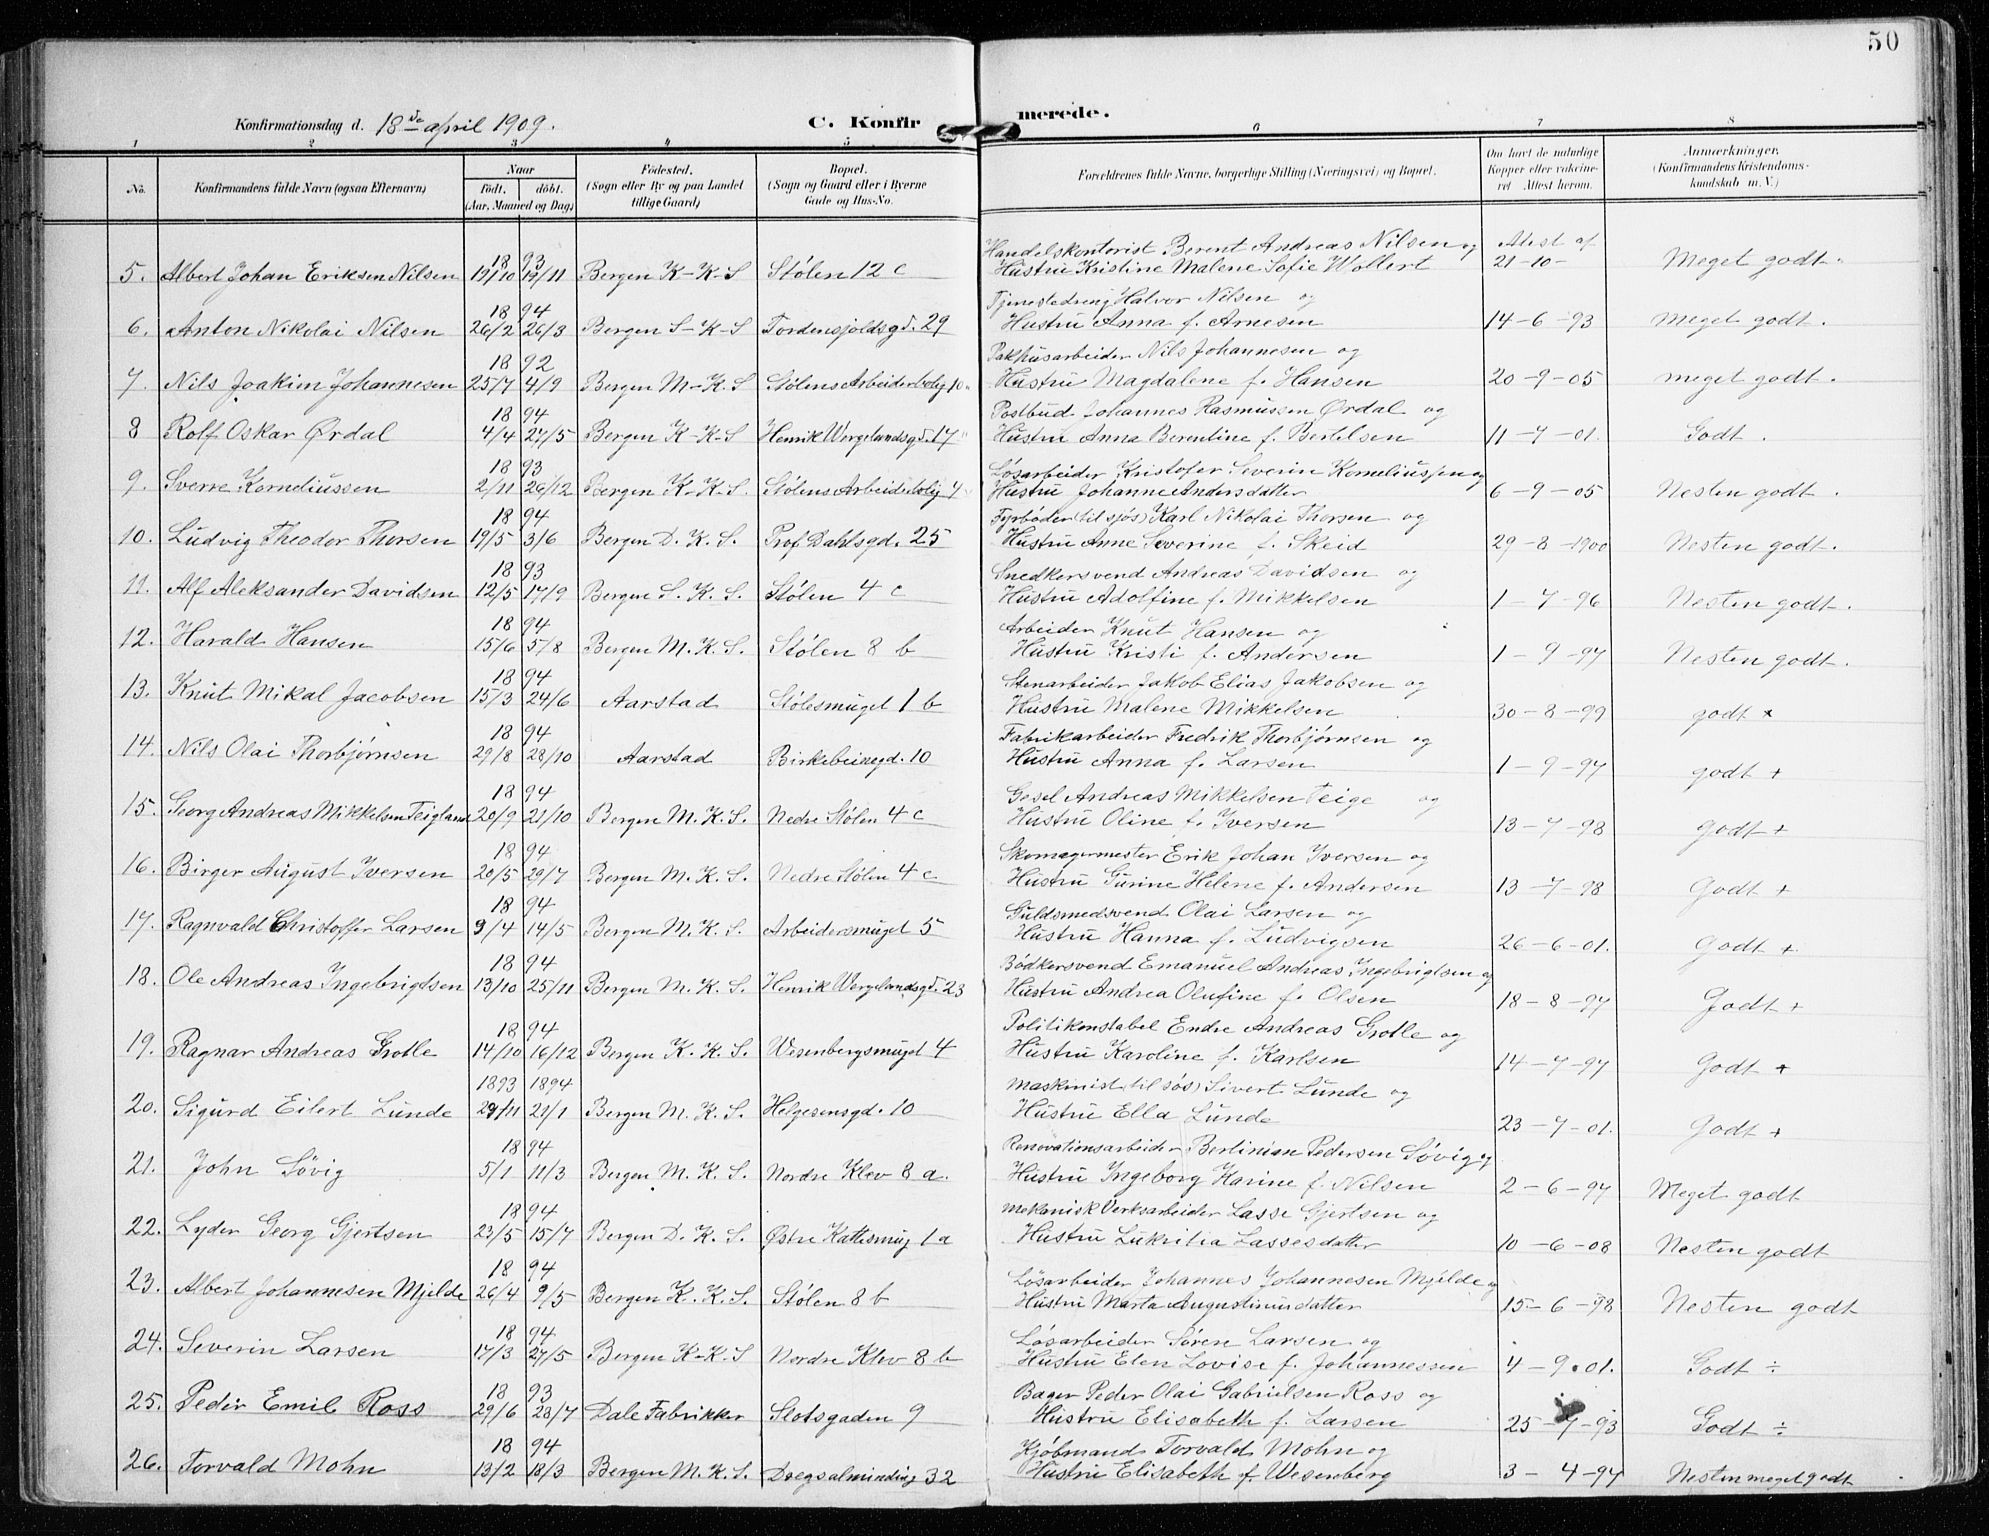 50
Konfirmationsdag d. 18de april 1909. C. Konfirmerede.
1 2 3 4 5 6 7 8
No. Konfirmandens fulde Navn (ogsaa Efternavn) Naar født, døbt. (Aar, Maaned og Dag) Fødested. (Sogn eller By og paa Landet tillige Gaard) Bopæl. (Sogn og Gaard eller i Byerne Gade og Hus-No. Forældrenes fulde Navne, borgerlige Stilling (Næringsvei) og Bopæl. Om havt de naturlige Kopper eller vaccineret. Attest herom. Anmærkninger. (Konfirmandens Kristendomskundskab m. V.)
18 93 Handelskontorist Berent Andreas Nilsen og Atest af
5. Albert Johan Eriksen Nilsen 19/10 19/11 Bergen K-K-S Stølen 12 c Hustru Kristine Malene Sofie Wollert 21-10- Meget godt.
18 94 Tjenestedreng Halvor Nilsen og
6. Anton Nikolai Nilsen 26/2 26/3 Bergen S-K-S Tordensjoldsgd. 29 Hustru Anna f. Arnesen 14-6-93 Meget godt.
18 92 Pakhusarbeider Nils Johannesen og
7. Nils Joakim Johannesen 25/7 4/9 Bergen M-K.S Stølens Arbeiderbolig 10 Hustru Magdalene f. Hansen 20-9-05 meget godt.
18 94 Postbud Johannes Rasmussen Ørdal og
8 Rolf Oskar Ørdal 4/4 27/5 Bergen K-K-S Henrik Wergelandsgd. 17 Hustru Anna Berentine f. Bertelsen 11-7-01. Godt.
18 93 Løsarbeider Kristofer Severin Korneliussen og
9. Sverre Korneliussen 2/11 26/12 Bergen K-K-S. Stølens Arbeiderbolig 4 Hustru Johanne Andersdatter 6-9-05 Nesten godt.
18 94 Fyrbøder (til sjøs) Karl Nikolai Thorsen og
10. Ludvig Theodor Thorsen 19/5 3/6 Bergen D.K.S. Prof Dahlsgd. 25 Hustru Anne Severine f. Skeid 29-8-1900 Nesten godt.
18 93 Snedkersvend Andreas Davidsen og
11. Alf Aleksander Davidsen 12/5 17/9 Bergen S.K.S. Stølen 4 c Hustru Adolfine f. Mikkelsen 1-7-96 Nesten godt.
18 94 Arbeider Knut Hansen og
12. Harald Hansen 15/6 5/8 Bergen M.K.S. Stølen 8 b Hustru Kristi f. Andersen 1-9-97 Nesten godt.
18 94 Stenarbeider Jakob Elias Jakobsen og
13. Knut Mikal Jacobsen 15/3 24/6 Aarstad Stølesmuget 1 b Hustru Malene Mikkelsen 30-8-99 godt +
18 94 Fabrikarbeider Fredrik Thorbjørnsen og
14. Nils Olai Thorbjørnsen 29/8 28/10 Aarstad Birkebeinegd. 10 Hustru Anna f. Larsen 1-9-97 godt +
18 94 Gesel Andreas Mikkelsen Teige og
15. Georg Andreas Mikkelsen Teigland 20/9 21/10 Bergen M.K.S. Nedre Stølen 4 c Hustru Oline f. Iversen 13-7-98 Godt +
18 94 Skomagermester Erik Johan Iversen og
16. Birger August Iversen 20/5 29/7 Bergen M.K.S. Nedre Stølen 4 c Hustru Gurine Helene f. Andersen 13-7-98 Godt +
18 94 Guldsmedsvend Olai Larsen og
17. Ragnvald Christoffer Larsen 9/4 14/5 Bergen M.K.S. Arbeidersmuget 5 Hustru Hanna f. Ludvigsen 26-6-01. Godt +
18 94 Bødkersvend Emanuel Andreas Ingebrigtsen og
18. Ole Andreas Ingebrigtsen 13/10 25/11 Bergen M.K.S. Henrik Wergelandsgd. 23 Hustru Andrea Olufine f. Olsen 18-8-97 Godt +
18 94 Politikonstabel Endre Andreas Grotle og
19. Ragnar Andreas Grotle 14/10 16/12 Bergen K.K.S. Wesenbergsmuget 4 Hustru Karoline f. Karlsen 14-7-97 Godt +
1893 1894 Maskinist (til søs) Sivert Lunde og
20. Sigurd Eilert Lunde 29/11 21/1 Bergen M.K.S. Helgesensgd. 10 Hustru Ella Lunde 23-7-01. Godt +
18 94 Renovationsarbeider Berlinian Pedersen Søvig og
21. John Søvig 5/1 11/3 Bergen M.K.S. Nordre Klev 8 a. Hustru Ingeborg Karine f. Nilsen 2-6-97 Meget godt
18 94 Mekanisk Verksarbeider Lasse Gjertsen og
22. Lyder Georg Gjertsen 23/5 15/7 Bergen D.K.S. Østre Kattesmug 1 a Hustru Lukritia Lassesdatter 10-6-08 Nesten godt
18 94 Løsarbeider Johannes Johannesen Mjelde og
23. Albert Johannesen Mjelde 26/4 9/5 Bergen K.K.S. Stølen 8 b Hustru Marta Augustinusdatter 15-6-98 Nesten godt
18 94 Løsarbeider Søren Larsen og
24. Severin Larsen 17/3 27/5 Bergen K-K.S Nordre Klev 8 b Hustru Elen Lovise f. Johannessen 4-9.01. Godt ÷
18 93 Bager Peder Olai Gabrielsen Ross og
25. Peder Emil Ross 29/6 28/7 Dale Fabrikker Slotsgaden 9 Hustru Elisabeth f. Larsen 25-7-93 Godt ÷
18 94 Kjøbmand Torvald Mohn og
26. Torvald Mohn 13/2 18/3 Bergen M.K.S. Dregsalminding 32 Hustru Elisabeth f. Wesenberg 3-4-97 Nesten meget godt